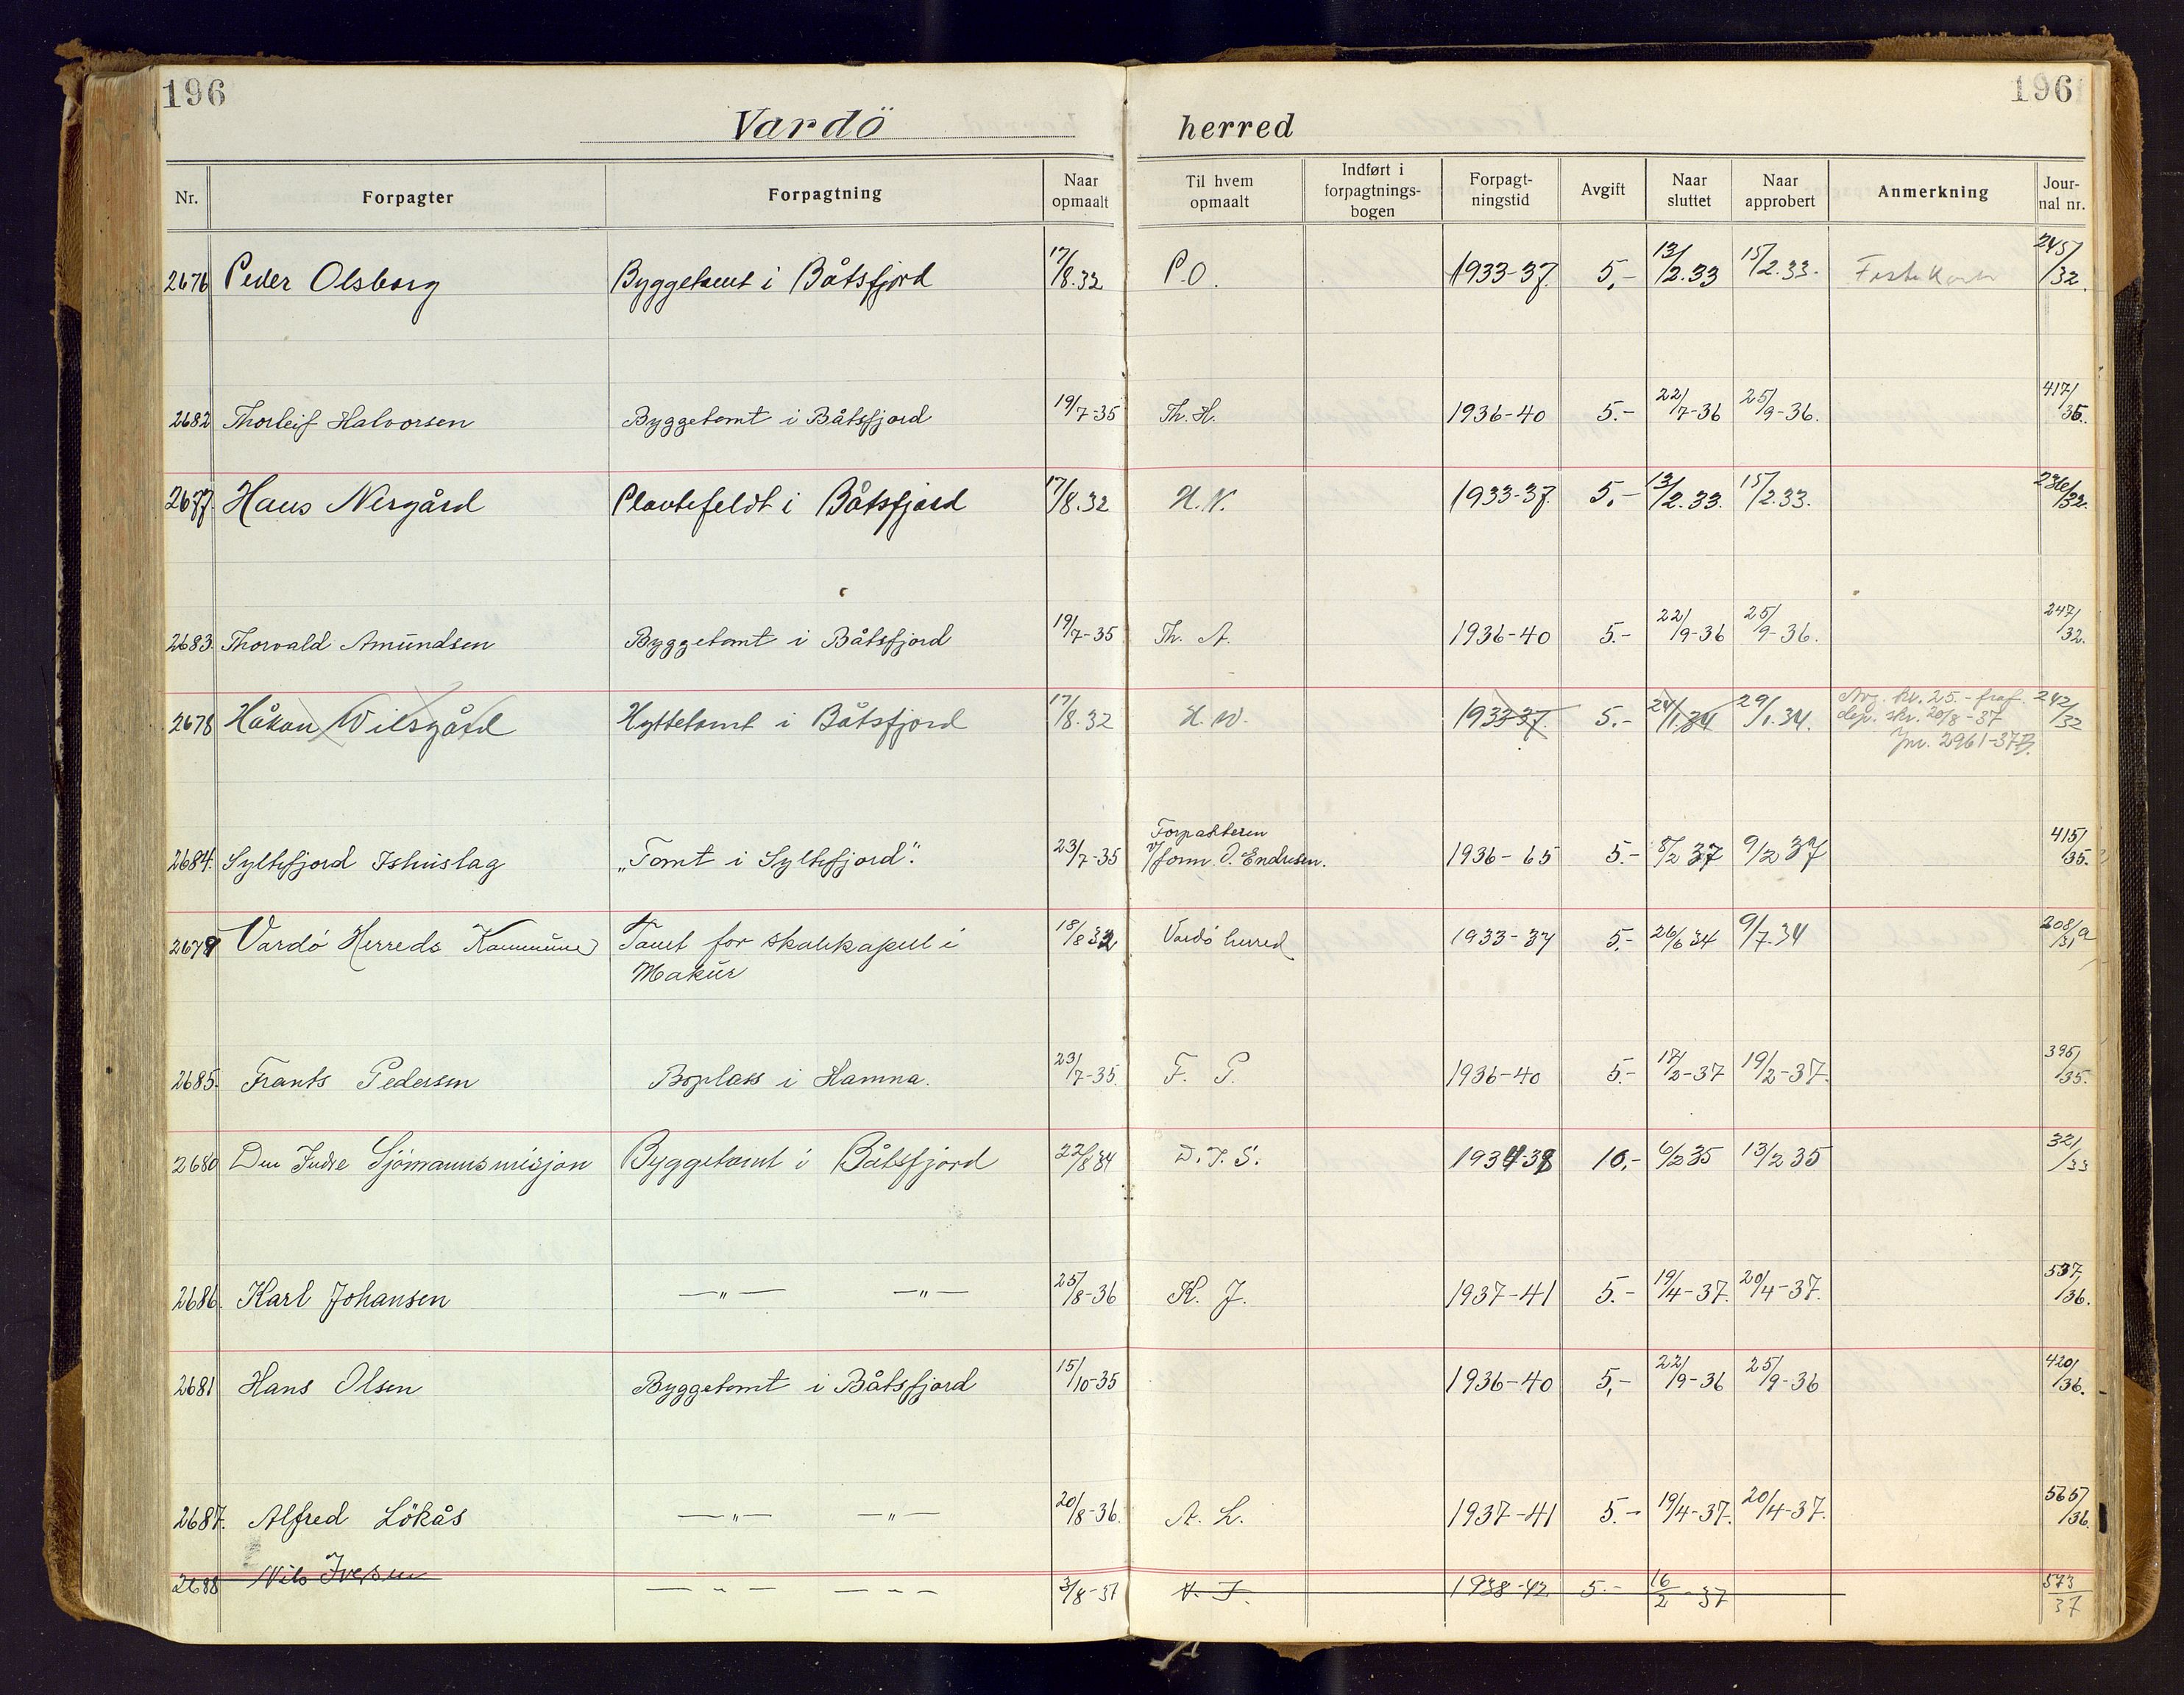 196 196
Vardö herred
Nr. Forpagter Forpagtning Naar opmaalt Til hvem opmaalt Indført i forpagtnings-bogen Forpagt-ningstid Avgift Naar sluttet Naar approbert Anmerkning Jour-nal nr.
2676 Peder Olsborg Byggetomt i Båtsfjord 17/8.32 P.O. 1933-37. 5,- 13/2.33 15/2.33. Festekort 245/32.
2682 Thorleif Halvorsen Byggetomt i Båtsfjord 19/7-35 Th. H. 1936-40 5.- 22/7-36 25/9-36. 417/35.
2677. Hans Nergård Plantefeldt i Båtsfjord 17/8.32 H.N. 1933-37. 5,- 13/2.33. 15/2.33. 236/32.
2683. Thorvald Amundsen Byggetomt i Båtsfjord 19/7-35 Th. A. 1936-40 5.- 22/9-36 25/9-36. 247/32.
2678 Håkon Wilsgård Hyttetomt i Båtsfjord 17/8.32 H.W. 1933-37. 5.- 24/1.34 29/1.34. Avg. kr. 25.- fraf. 242/32
dep. skr. 20/8-37
Jnr. 2961-37B.
Forpakteren
2684. Syltefjord Ishuslag „Tomt i Syltefjord". 23/7-35 v/form. O. Endresen. 1936-65 5.- 8/2 37 9/2 37 415/35.
2679 Vardö Herreds Kommune Tomt for skolekapell i 18/8 32 Vardö herred 1933-37 5,- 26/6 34 9/7.34 208/31 a
Makur
2685. Frants Pedersen Boplass i Hamna. 23/7-35. F. P. 1936-40 5.- 17/2-37 19/2-37. 395/35.
2680 Den Indre Sjömannsmisjon Byggetomt i Båtsfjord 22/8 34 D.I.S. 1934-38 10,- 6/2 35 13/2 35 32/33
2686. Karl Johansen —„— —„— 25/8-36 K. J. 1937-41 5.- 19/4-37. 20/4-37. 537/36.
2681 Hans Olsen Byggetomt i Båtsfjord 15/10-35 1936-40 5,- 22/9-36 25/9-36 420/36.
2687. Alfred Lökås —„— —„— 20/8-36. A. L. 1937-41 5.- 19/4-37. 20/4-37. 565/36.
2688 Nils Iversen —„— —„— 3/8-37 N. I. 1938-42 5.- 16/2-37 573/37